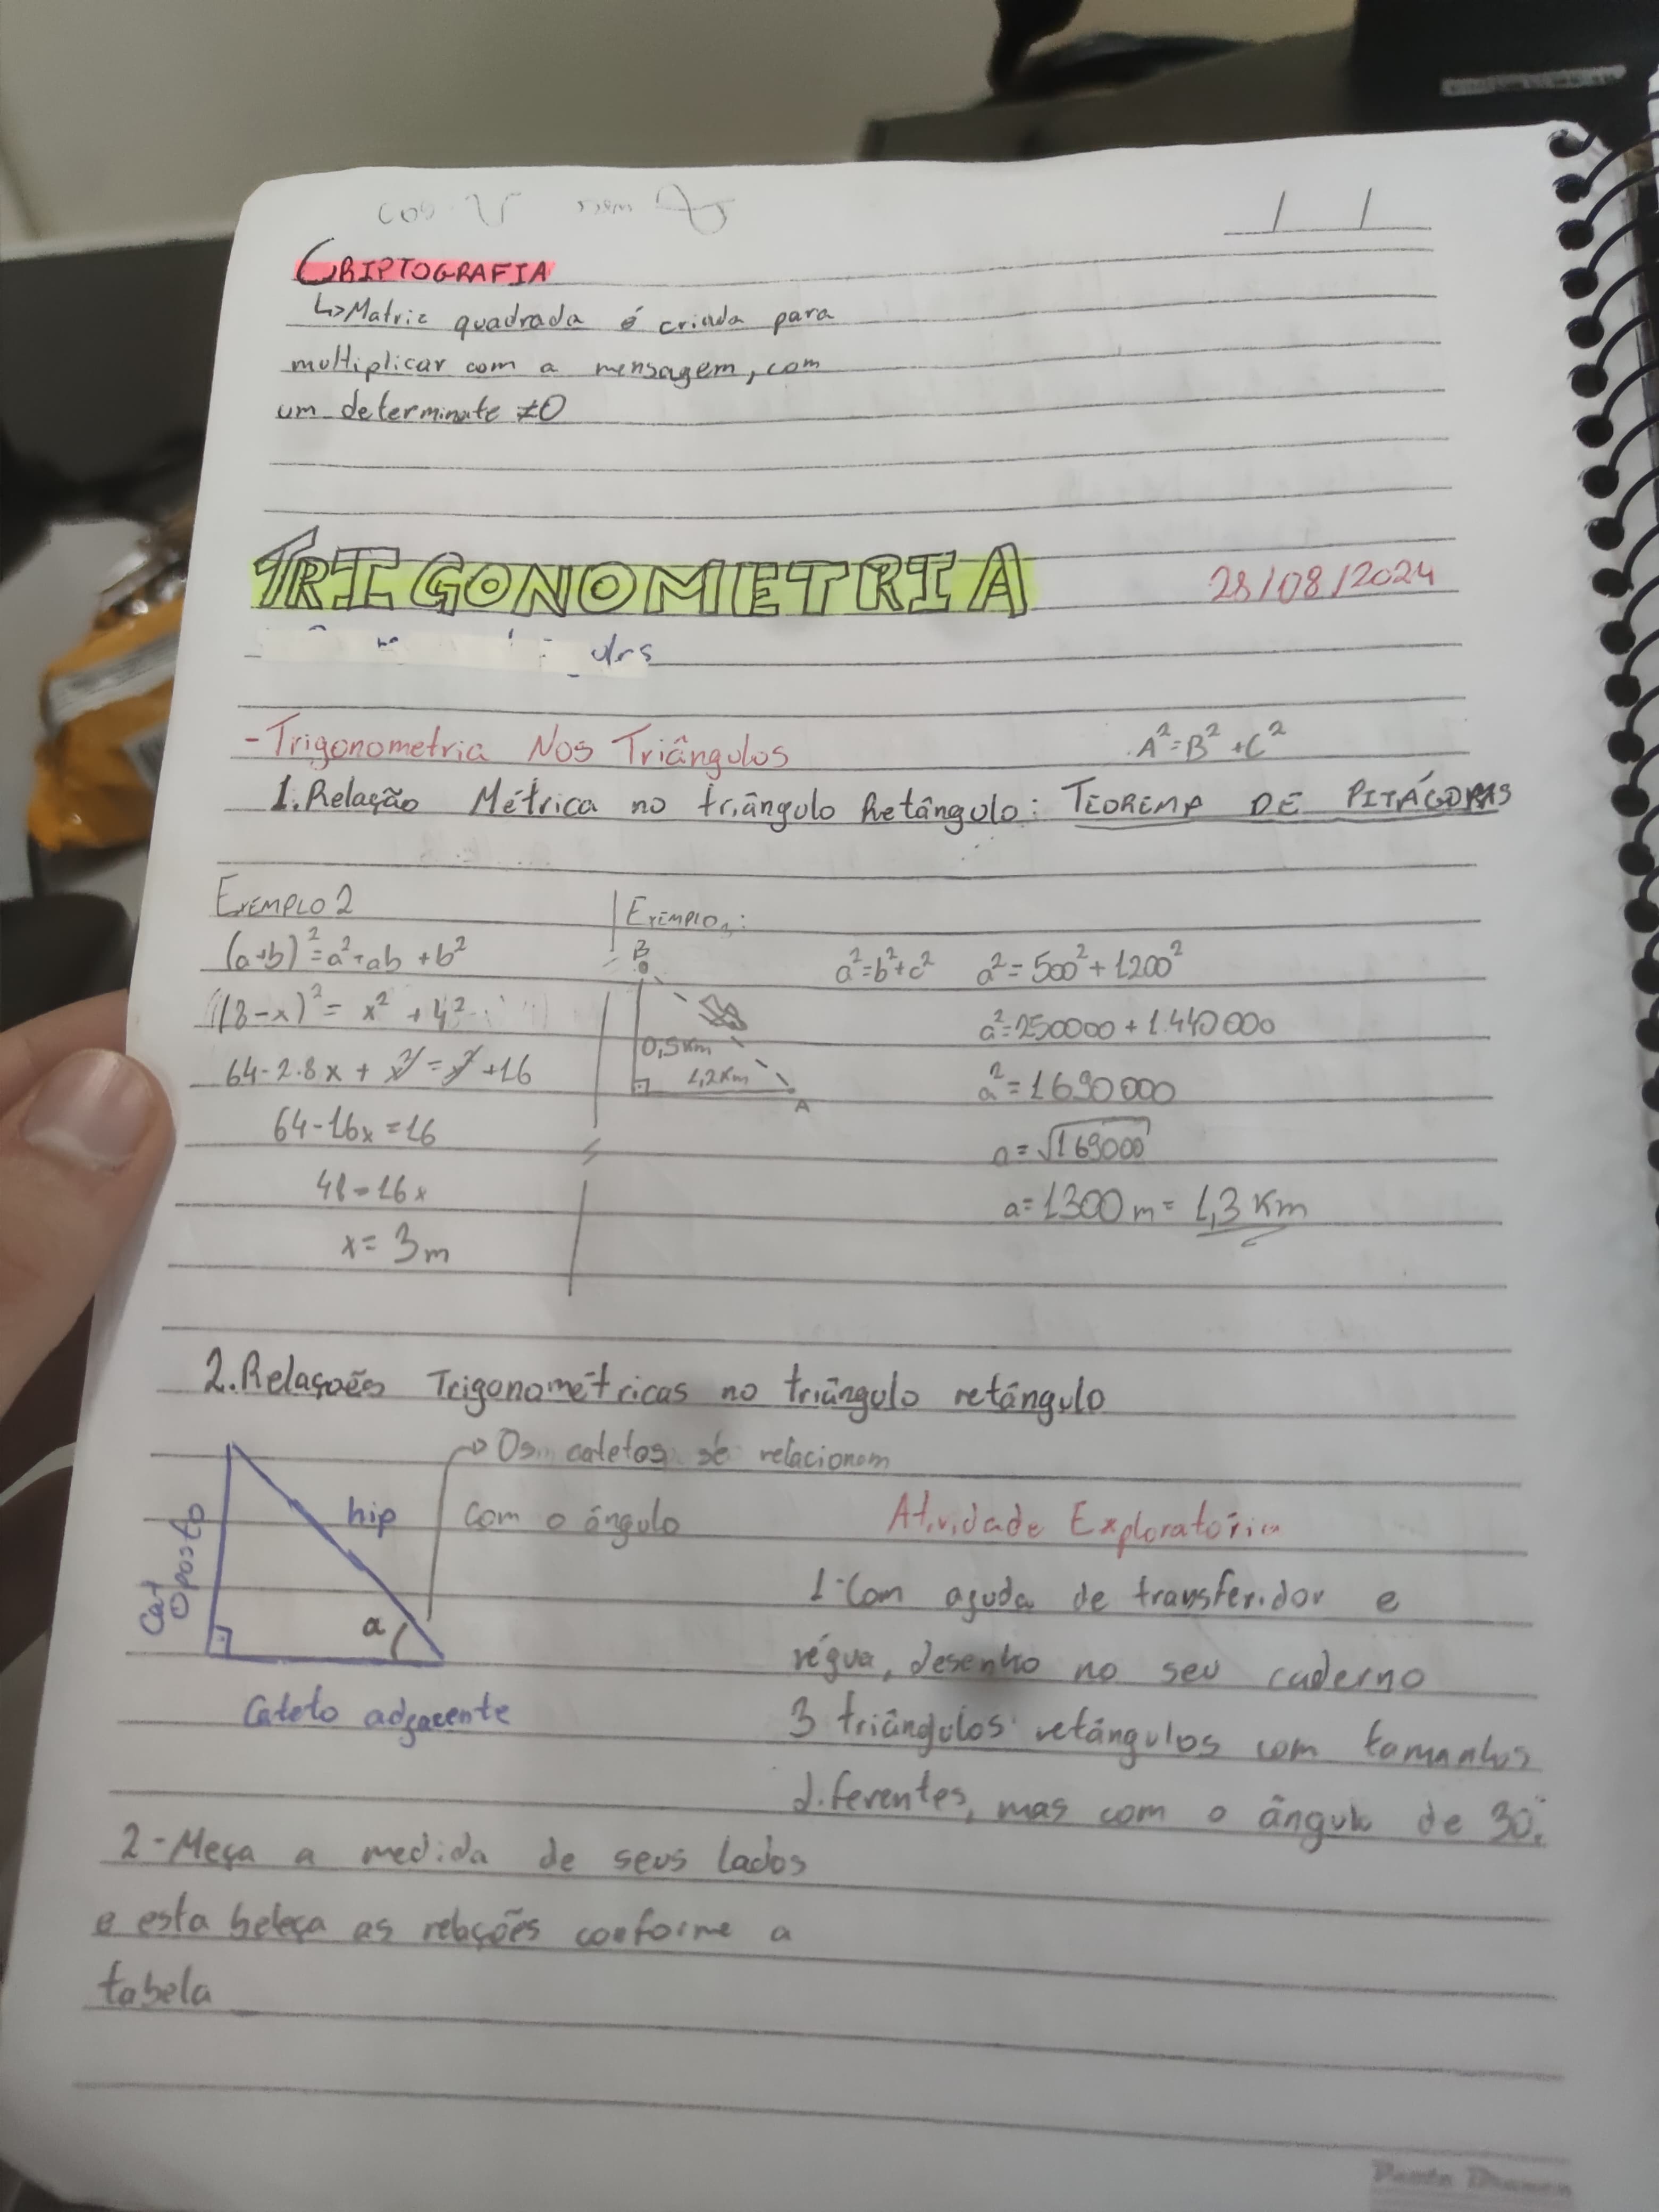 CRIPTOGRAFIA
↳Matriz quadrada é criada para
multiplicar com a mensagem, com
um determinate ≠0
TRIGONOMETRIA
28/08/2024
-Trigonometria Nos Triângulos
A²=B²+C²
1.Relação Métrica no triângulo Retângulo: TEOREMA DE PITÁGORAS
EXEMPLO 2
(a+b)²=a²+ab+b²
(8-x)²= x² + 4²
64-2.8x + x² = x² +16
64-16x=16
48=16x
x= 3m
EXEMPLO1:
B
0,5Km
1,2Km
A
a²=b²+c² a²= 500²+1200²
a²=250000+1.440000
a²=1690000
a=√169000
a=1300m= 1,3 Km
2.Relações Trigonométricas no triângulo retângulo
→Os catetos se relacionam
com o ângulo
Cat Oposto
hip
a
Cateto adjacente
Atividade Exploratória
1-Com ajuda de transferidor e
régua, desenho no seu caderno
3 triângulos retângulos com tamanhos
diferentes, mas com o ângulo de 30°.
2-Meça a medida de seus lados
e esta beleça as relações conforme a
tabela